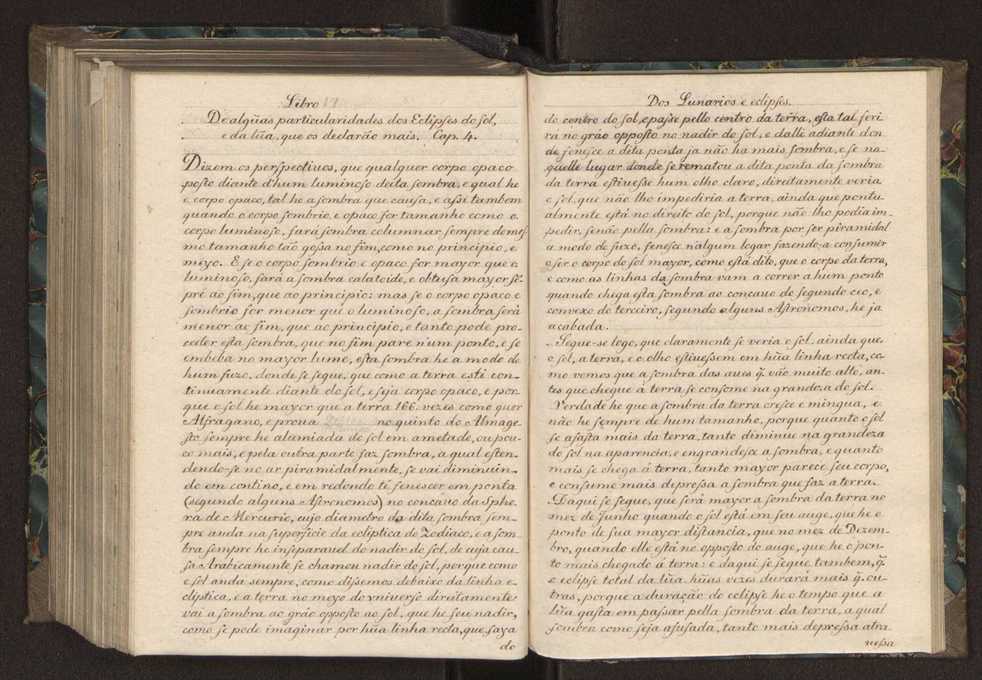 Libro
De algũas particularidades dos Eclipses do sol,
e da lũa, que os declarão mais. Cap. 4.
Dizem os perspectiuos, que qualquer corpo opaco
posto diante d'hum luminoso deita sombra, e qual he
o corpo opaco, tal he a sombra que causa, e assi tambem
quando o corpo sombrio, e opaco for tamanho como o
corpo luminoso, fará sombra columnar sempre do mes
mo tamanho tão gossa no fim, como no principio, e
meyo. E se o corpo sombrio e opaco for mayor que o
luminoso, fará a sombra calatoide, e obtusa mayor sẽ-
pre ao fim, que ao principio: mas se o corpo opaco e
sombrio for menor que o luminoso, a sombra será
menor ao fim, que ao principio, e tanto pode pro-
ceder esta sombra, que no fim pare n'um ponto, e se
embeba no mayor lume, esta sombra he a modo de
hum fuzo, donde se segue, que como a terra está con-
tinuamente diante do sol, e seja corpo opaco, e por
que o sol he mayor que a terra 166. vezes como quer
Alfragano, e proua no quinto do Almage
sto sempre he alumiada do sol em ametade, ou pou-
co mais, e pela outra parte faz sombra, a qual esten-
dendo-se no ar piramidalmente, se vai diminuin-
do em contino, e em redondo té fenescer em ponta
(segundo alguns Astronomos) no concauo da Sphe-
ra de Mercurio, cujo diametro da dita sombra sem-
pre anda na superficie da ecliptica do Zodiaco, e a som-
bra sempre he inseparauel do nadir do sol, de cuja cau-
sa Arabicamente se chamou nadir do sol, porque como
o sol anda sempre, como dissemos debaixo da linha e-
cliptica, e a terra no meyo do vniuerso direitamente
vai a sombra ao gráo opposto ao sol, que he seu nadir,
como se pode imaginar por hũa linha recta, que saya
do
Dos Lunarios e eclipses.
do centro do sol, e passe pello centro da terra, esta tal feri
rá no gráo opposto no nadir do sol, e dalle adiante don
de fenesce a dita ponta já não ha mais sombra, e se na-
quelle lugar donde se rematou a dita ponta da sombra
da terra estiuesse hum olho claro, direitamente veria
o sol, que não lho impediria a terra, ainda que pontu-
almente está no direito do sol, porque não lho podia im-
pedir, senão pella sombra: e a sombra por ser piramidal
a modo de fuzo, fenesce n'algum logar fazendo-a consumir
o ser o corpo do sol mayor, como está dito, que o corpo da terra,
e como as linhas da sombra vam a correr a hum ponto
quando chega esta sombra ao concauo do segundo ceo, e
conuexo do terceiro, segundo alguns Astronomos, he ja
acabada.
Segue-se logo, que claramente se veria o sol, ainda que
o sol, a terra, e o olho estiuessem em hũa linha recta, co-
mo vemos que a sombra das aues q̃ vão muito alto, an-
tes que chegue á terra se consome na grandeza do sol.
Verdade he que a sombra da terra cresce e mingua, e
não he sempre de hum tamanho, porque quanto o sol
se afasta mais da terra, tanto diminue na grandeza
do sol na aparencia, e engrandesce a sombra, e quanto
mais se chega á terra, tanto mayor parece seu corpo,
e consume mais depressa a sombra que faz a terra.
Daqui se segue, que será mayor a sombra da terra no
mez de Junho quando o sol está em seu auge, que he o
ponto de sua mayor distancia, que no mez de Dezem-
bro, quando elle está no opposto do auge, que he o pon-
to mais chegado á terra: e daqui se segue tambem, q̃
o eclipse total da lũa hũas vezes durará mais q̃ ou-
tras, porque a duração do eclipse he o tempo que a
lũa gasta em passar pella sombra da terra, a qual
sombra como seja afusada, tanto mais depressa atra
uessa